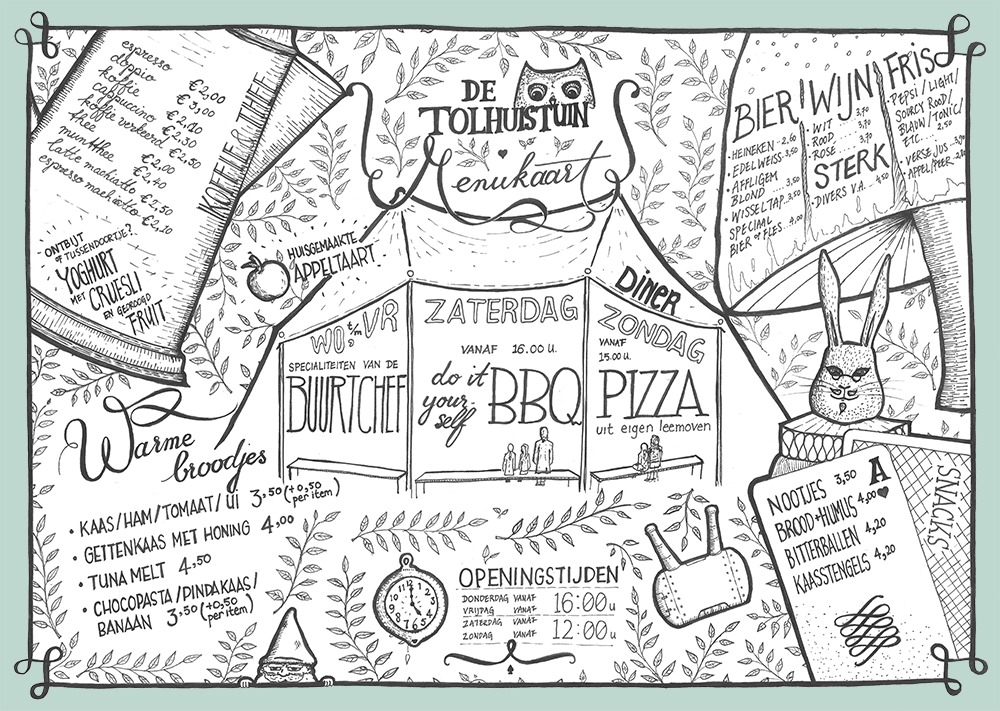 DE
TOLHUISTUIN
Menukaart
KOFFIE & THEE
espresso €2,00
doppio €3,00
koffie €2,10
cappuccino €2,30
koffie verkeerd €2,50
thee €2,00
muntthee €2,40
latte machiatto €2,50
espresso machiatto €2,10
ONTBIJT
OF TUSSENDOORTJE?
YOGHURT
MET CRUESLI
EN GEDROOGD
FRUIT
HUISGEMAAKTE
APPELTAART
BIER
HEINEKEN 2.60
EDELWEISS 3,50
AFFLIGEM
BLOND 3,50
WISSELTAP 3,50
SPECIAAL
BIER OP FLES 4.00
WIJN
WIT 3,70
ROOD 3,70
ROSÉ 3,70
STERK
DIVERS V.A. 4,50
FRIS
PEPSI / LIGHT /
SOURCY ROOD /
BLAUW / TONIC /
ETC. 2,50
VERSE JUS
APPEL/PEER
DINER
WO t/m VR
SPECIALITEITEN VAN DE
BUURTCHEF
ZATERDAG
VANAF 16.00 U.
do it
your-
self
BBQ
ZONDAG
VANAF
15.00 U.
PIZZA
uit eigen leemoven
Warme
broodjes
• KAAS/HAM/TOMAAT/UI 3,50 (+0,50
per item)
• GEITENKAAS MET HONING 4,00
• TUNA MELT 4,50
• CHOCOPASTA/PINDAKAAS/
BANAAN 3,50 (+0,50
per item)
OPENINGSTIJDEN
DONDERDAG VANAF
VRIJDAG VANAF 16:00 u
ZATERDAG VANAF
ZONDAG VANAF 12:00 u
SNACKS
A
NOOTJES 3,50
BROOD+HUMUS 4,00
BITTERBALLEN 4,20
KAASSTENGELS 4,20